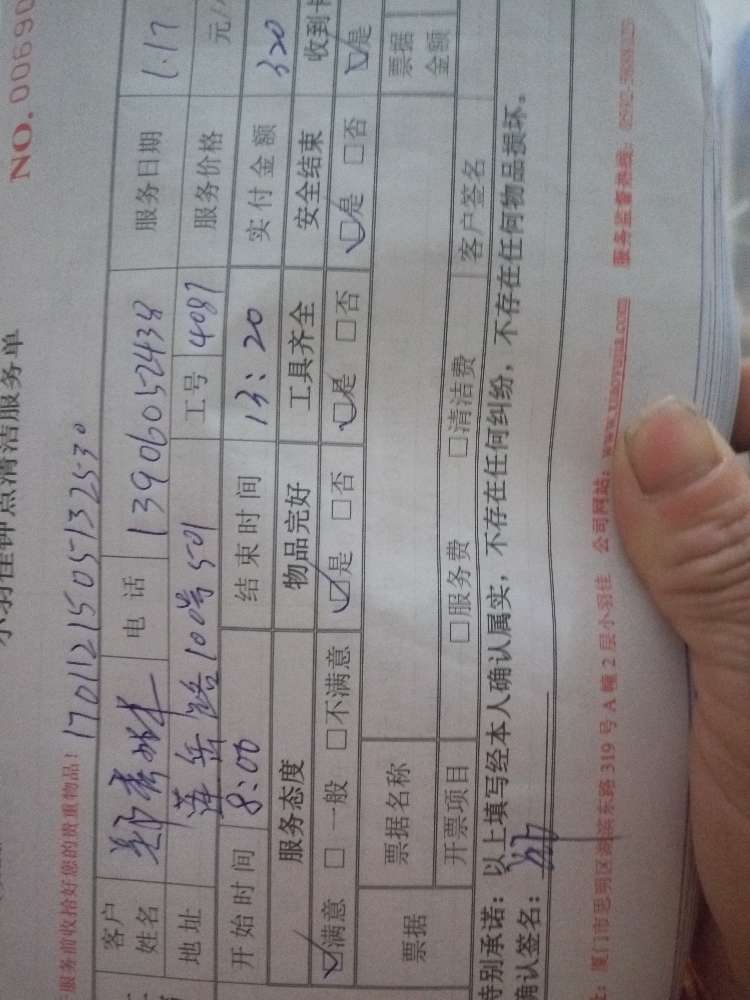 NO. 00690
小羽佳钟点清洁服务单
服务前收拾好您的贵重物品! 17011215057132530
客户姓名 电话 13906052438 服务日期 1.17
地址 莲岳路100号501 工号 4087 服务价格 元/
开始时间 8:00 结束时间 13:20 实付金额 320
服务态度 物品完好 工具齐全 安全结束 收到卡
☑满意 □一般 □不满意 ☑是 □否 ☑是 □否 ☑是 □否 ☑是
票据 票据名称 票据金额
开票项目 □服务费 □清洁费 客户签名
特别承诺:以上填写经本人确认属实,不存在任何纠纷,不存在任何物品损坏。
确认签名:
厦门市思明区湖滨东路319号A幢2层小羽佳 公司网站: 服务监督热线: